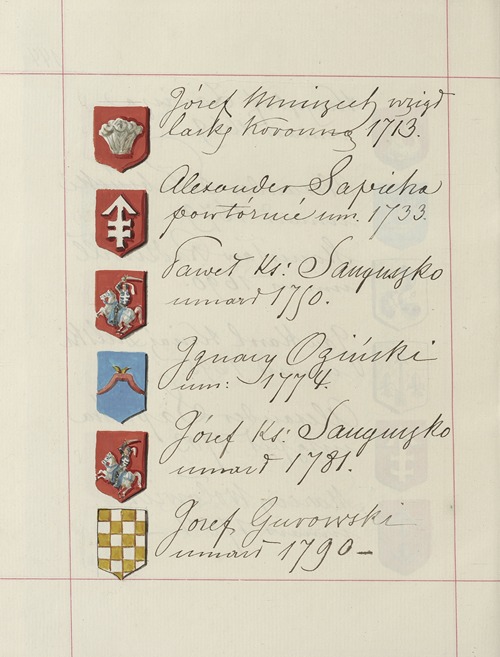 Józef Mniszech wziął
laskę Koronną 1713.
Alexander Sapieha
powtórnie um. 1733.
Paweł Ks: Sanguszko
umarł 1750.
Ignacy Ogiński
um: 1774.
Józef Ks: Sanguszko
umarł 1781.
Józef Gurowski
umarł 1790-